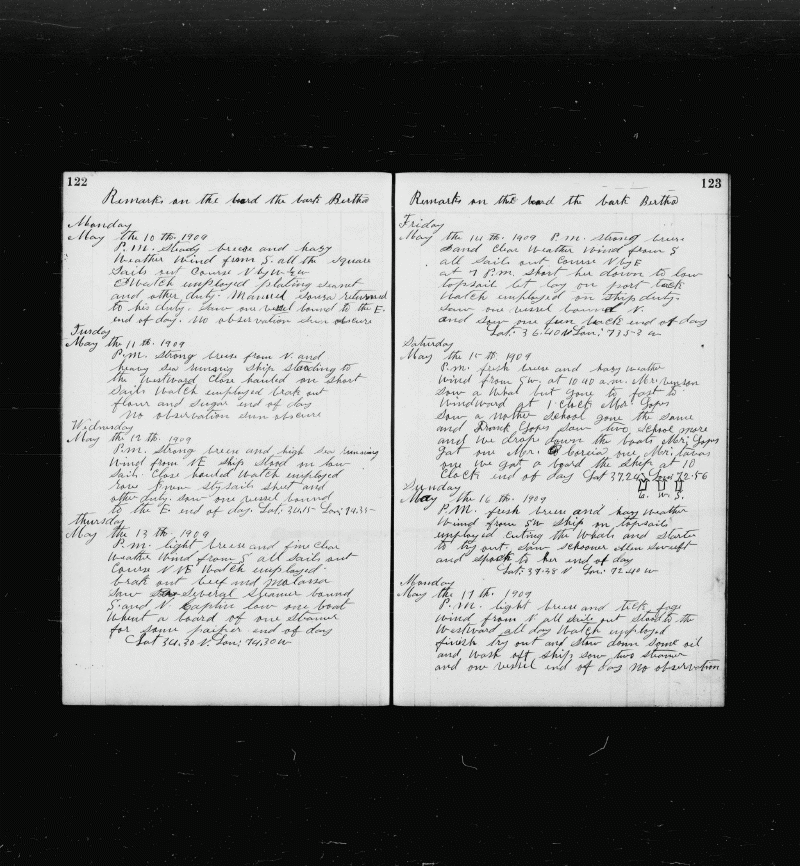 122
Remarks on the bord the bark Bertha
Monday
May the 10 th. 1909
P.M. Steady breese and hazy
Weather Wind from S. all the Square
Sails out Course N by W ½ W
Watch employed plating
and other duty. Manuel Sousa returned
to his duty. Saw one vessel bound to the E.
end of day. No observation Sun obscure
Tusday
May the 11 th. 1909
P.M. Strong breese from N. and
heavy Sea running Ship Standing to
the Westward Close hauled on Short
Sails Watch employed brak out
flour and Sugar end of day
No observation Sun obscure
Wednesday
May the 12 th. 1909
P.M. Strong breese and high Sea running
Wind from NE Ship Stood on low
Sail. Close hauled Watch employed
Sheet and
other duty. Saw one vessel bound
to the E. end of day. Lat: 34.15 Lon: 74.35
Thursday
May the 13 th. 1909
P.M. light breese and fine Clear
Weather Wind from S all Sails out
Course N NE Watch employed
brak out beef and Molassa
Saw Several Steamer bound
S. and N. Captin low one boat
Whent a board of one Steamer
for some paper end of day
Lat 34.30 N. Lon: 74.30 W
123
Remarks on the bord the bark Bertha
Friday
May the 14 th. 1909 P.M. Strong breese
and Clear Weather Wind from S
all Sails out Course N by E
at 7 P.M. Short her down to low
topsail let lay on port tack
Watch employed on Ship duty.
Saw one vessel bound N.
and Saw one fin back end of day
Lat: 36.40 N Lon: 73.52 W
Saturday
May the 15 th. 1909
P.M. fresh breese and hazy weathe
Wind from SW. at 10 40 a.m. Mr.
Saw a Whal but gone to fast to
Windward at 1. Clock Mr. Lopes
Saw a nother School gone the same
and Frank Lopes saw two School more
and we drop down the boats Mr. Lopes
gat one Mr. Coreia one Mr.
one We gat a board the Ship at 10
Clock end of day Lat 37.24 N Lon: 72.56
Sunday
May the 16 th. 1909
P.M. fresh breese and hazy Weather
Wind from SW Ship on topsail
employed Cuting the Whals and Starte
to try out. Saw Schooner Swift
and Spock to her end of day
Lat: 37.28 N Lon: 72.40 W
Monday
May the 17 th. 1909
P.M. light breese and tick foge
Wind from N all Sails out Stood to the
Westward all day Watch employed
finish try out and Stow down Some oil
and Wash oft Ship, saw two Steamer
and one vessel end of day No observation